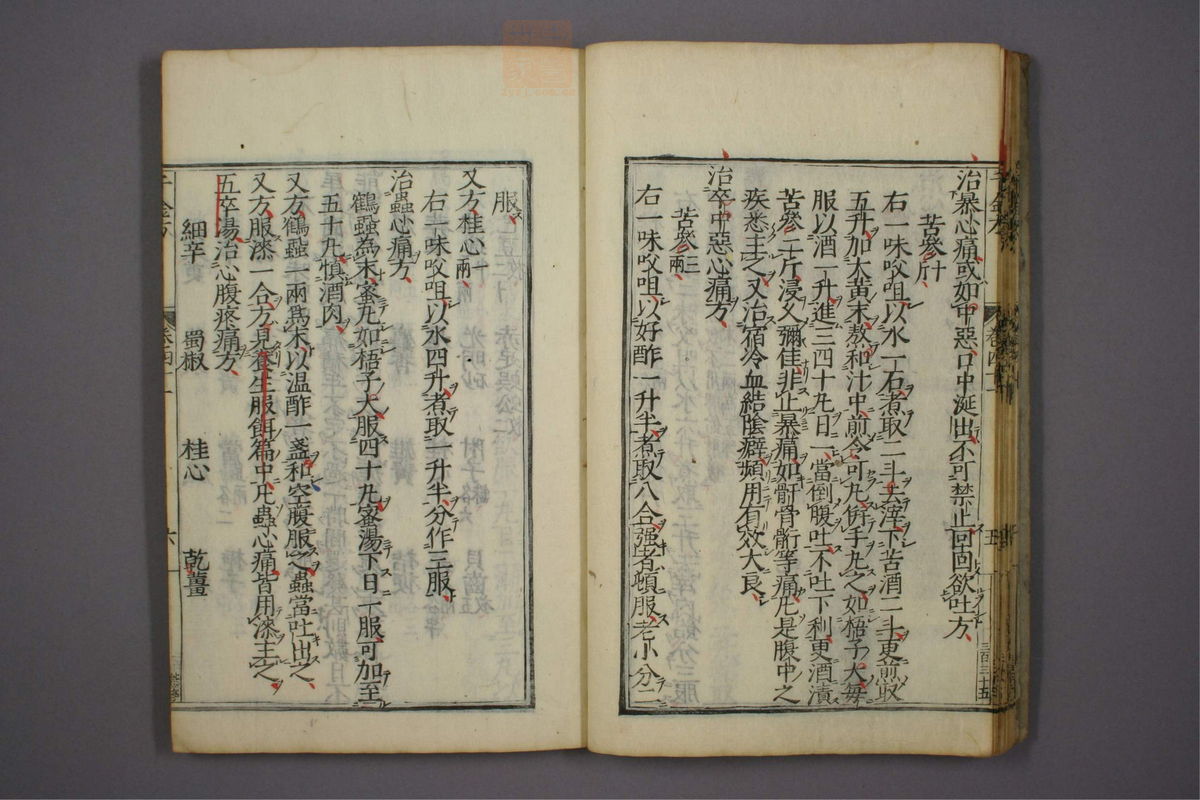 治暴心痛或如中惡口中涎出不可禁止回回欲吐方
苦參十
右一味㕮咀以水一石煮取二斗去滓下苦酒二斗更煎取
五升加大黃末熬和汁中煎令可丸併手丸之如梧子大每
服以酒一升進三四十丸日一當倒腹吐不吐下利更酒漬
苦參二斤浸久彌佳非止暴痛如骭骨䯒等痛凡是腹中之
疾悉主之又治宿冷血結陰癖頻用有效大良
治卒中惡心痛方
苦參三兩
右一味㕮咀以好酢一升半煮取八合強者頓服老小分二
三百三十五
千金方
卷四十
五
服
又方桂心一兩
右一味㕮咀以水四升煮取一升半分作三服
治蟲心痛方
鶴蝨為末蜜丸如梧子大服四十丸蜜湯下日一服可加至
五十丸慎酒肉
又方鶴蝨一兩為末以温酢一盞和空腹服之蟲當吐出
又方服漆一合方見養生服餌篇中凡蟲心痛皆用漆主之
五卒湯治心腹疼痛方
細辛 蜀椒 桂心 乾薑
千金方
卷四十
六